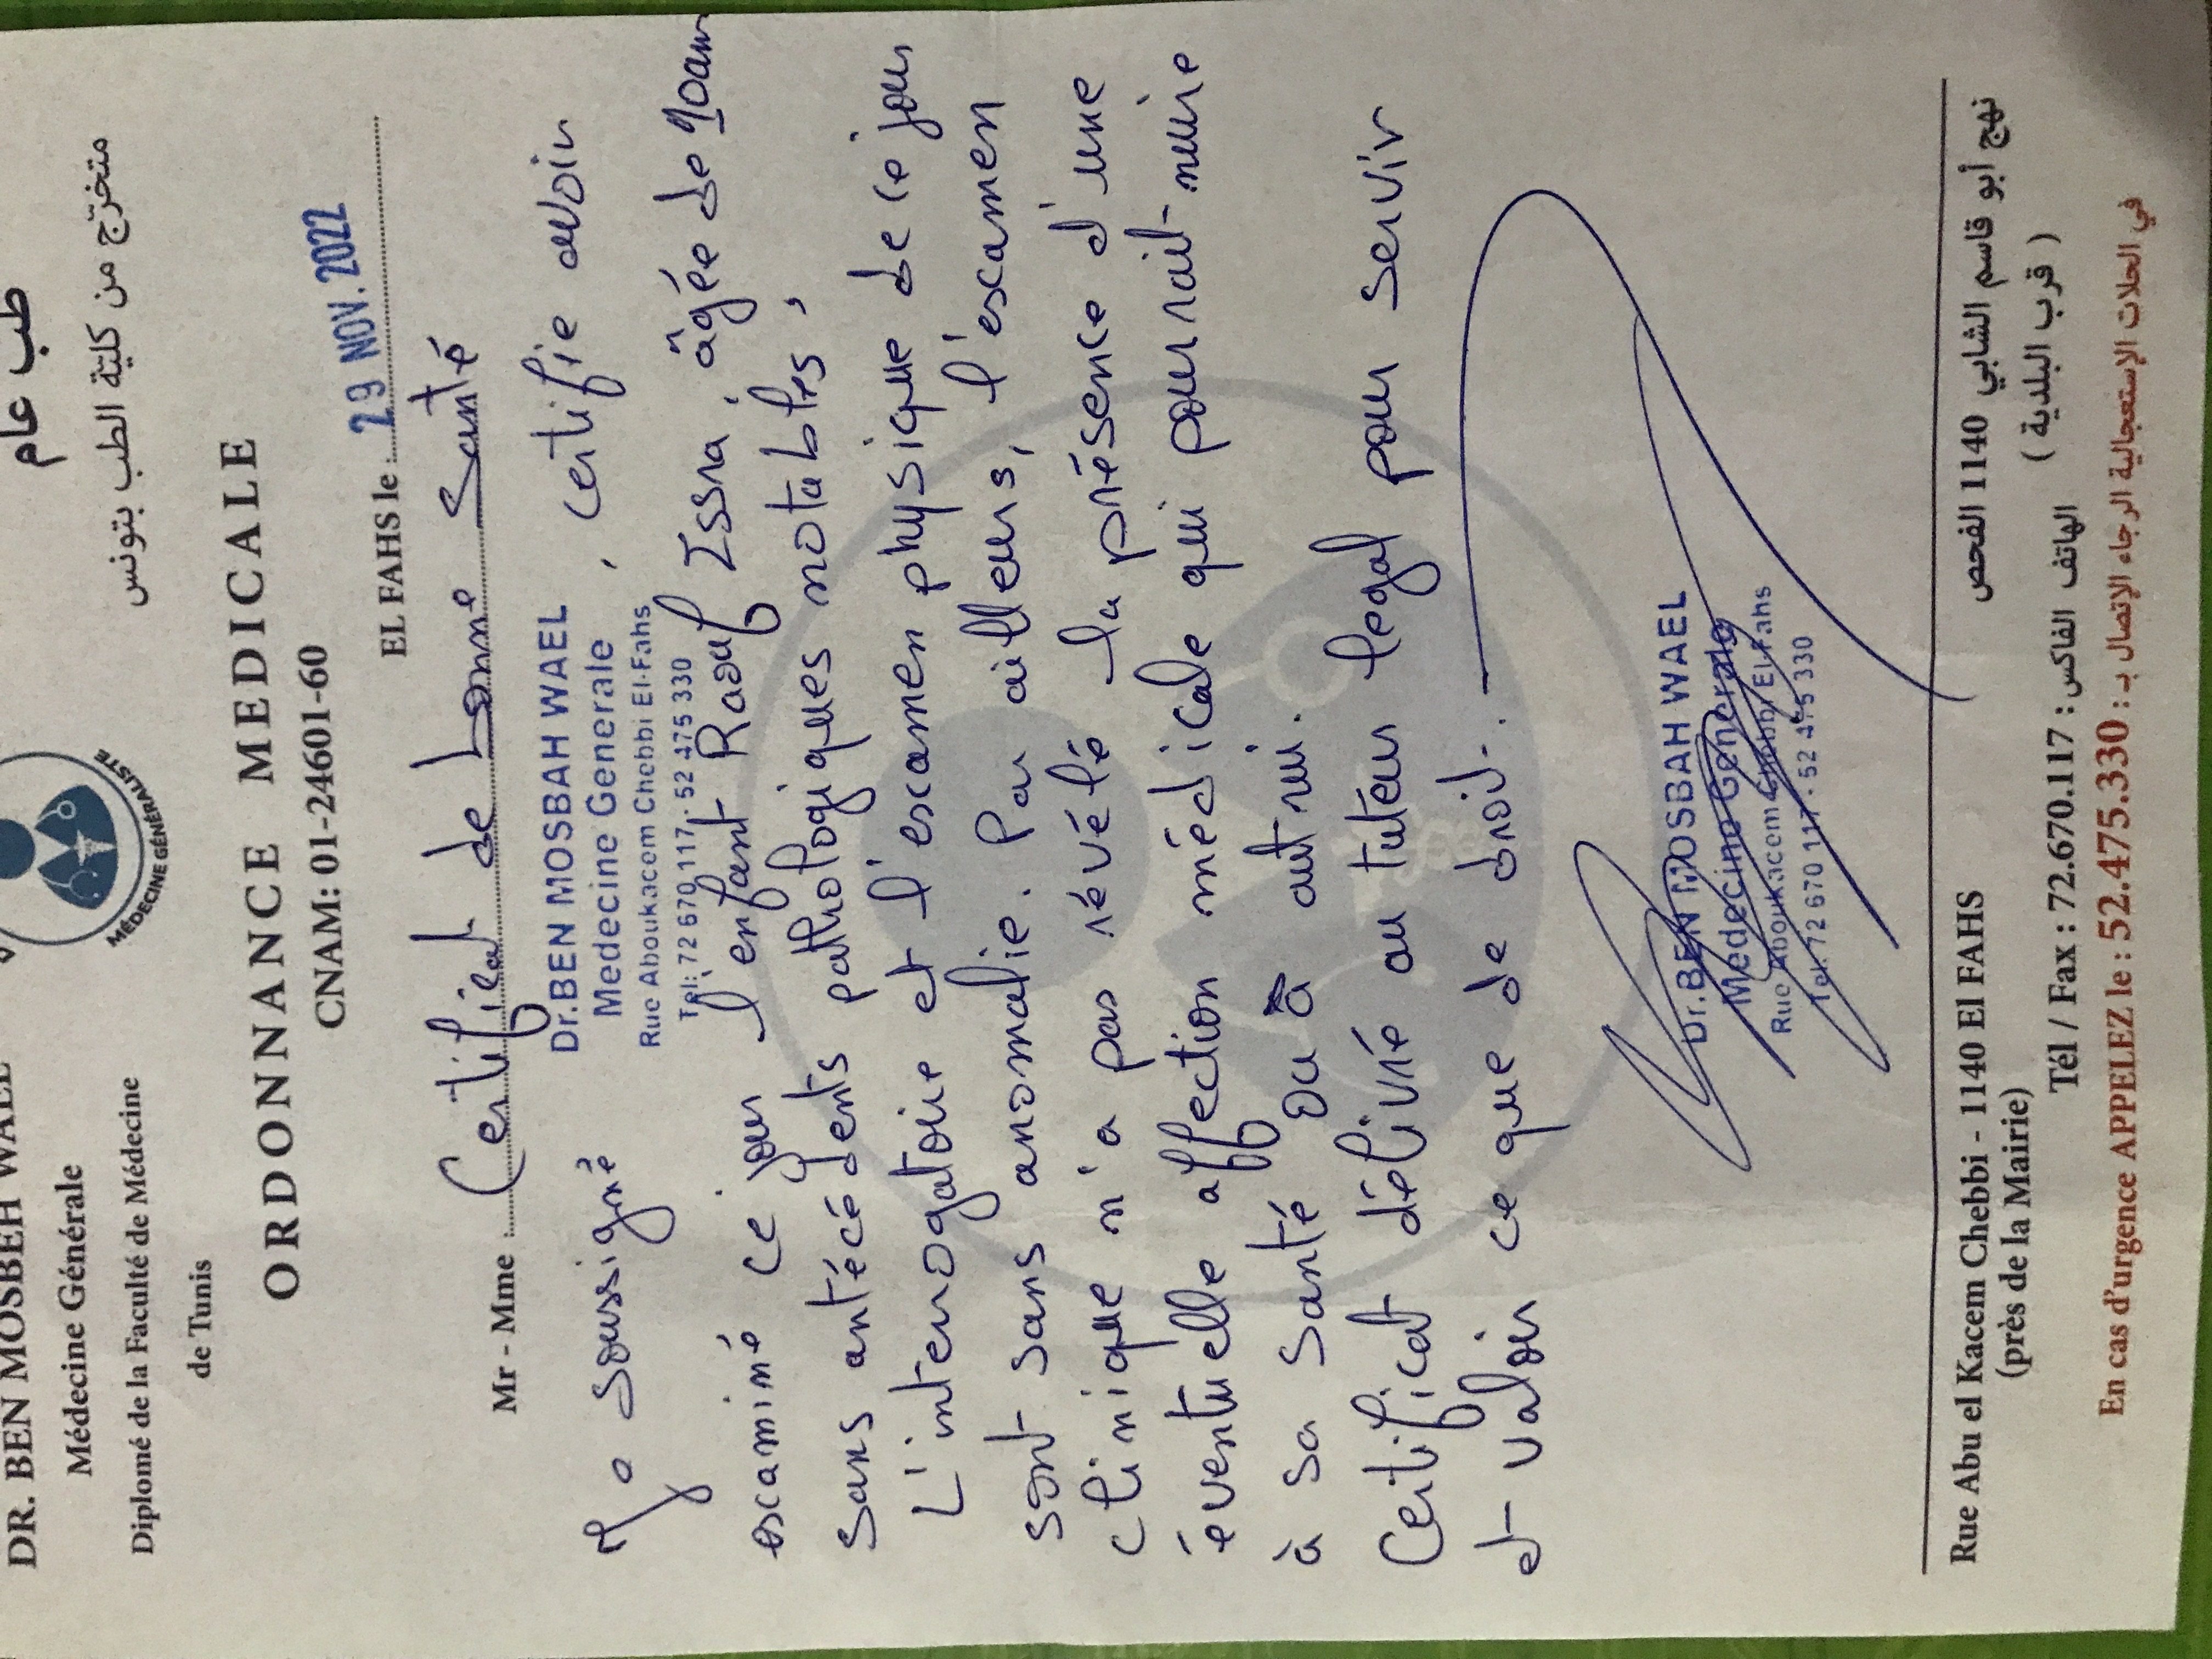 DR. BEN MOSBEH WAEL
Médecine Générale
Diplomé de la Faculté de Médecine
de Tunis
MÉDECINE GÉNÉRALISTE
طب عام
متخرّج من كلية الطب بتونس
ORDONNANCE MEDICALE
CNAM: 01-24601-60
EL FAHS le : 29 NOV. 2022
Mr - Mme : Certificat de bonne Santé
Je soussigné Dr. BEN MOSBAH WAEL , certifie avoir
Medecine Generale
Rue Aboukacem Chebbi El-Fahs
Tel: 72 670 117 - 52 475 330
examiné ce jour l'enfant Raouf Issra, âgée de
sans antécédents pathologiques notables,
L'interrogatoire et l'examen physique de ce jour
sont sans anomalie. Par ailleurs, l'examen
clinique n'a pas révélé la présence d'une
éventuelle affection médicale qui pourrait nuire
à sa santé ou à autrui.
Certificat délivré au tuteur legal pour servir
et valoir ce que de droit.
Dr. BEN MOSBAH WAEL
Medecine Generale
Rue Aboukacem Chebbi El-Fahs
Tel: 72 670 117 - 52 475 330
Rue Abu el Kacem Chebbi - 1140 El FAHS
(près de la Mairie)
نهج أبو قاسم الشابي 1140 الفحص
( قرب البلدية )
Tél / Fax : 72.670.117 : الهاتف الفاكس
En cas d'urgence APPELEZ le : 52.475.330 : في الحلات الإستعجالية الرجاء الإتصال بـ